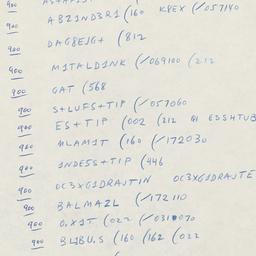 900
900 AB21ND3R1 (160 K8EX (/057140
900 DAG8EJG+ (812
900 M1TALD1NK (/069100 (212
900 GAT (568
900 S+LUFS+TIP (/057060
900 ES+TIP (002 (212 Q1 ESS4TUB
900 MLAM1T (160 (/172030
900 1NDESS+TIP (446
900 OC3XG1DRAUTIN OC3XG1DRAUTE
900 BALMA2L (/172110
900 O.X1T (022 (/031070
900 BUBU.S (160 (162 (022